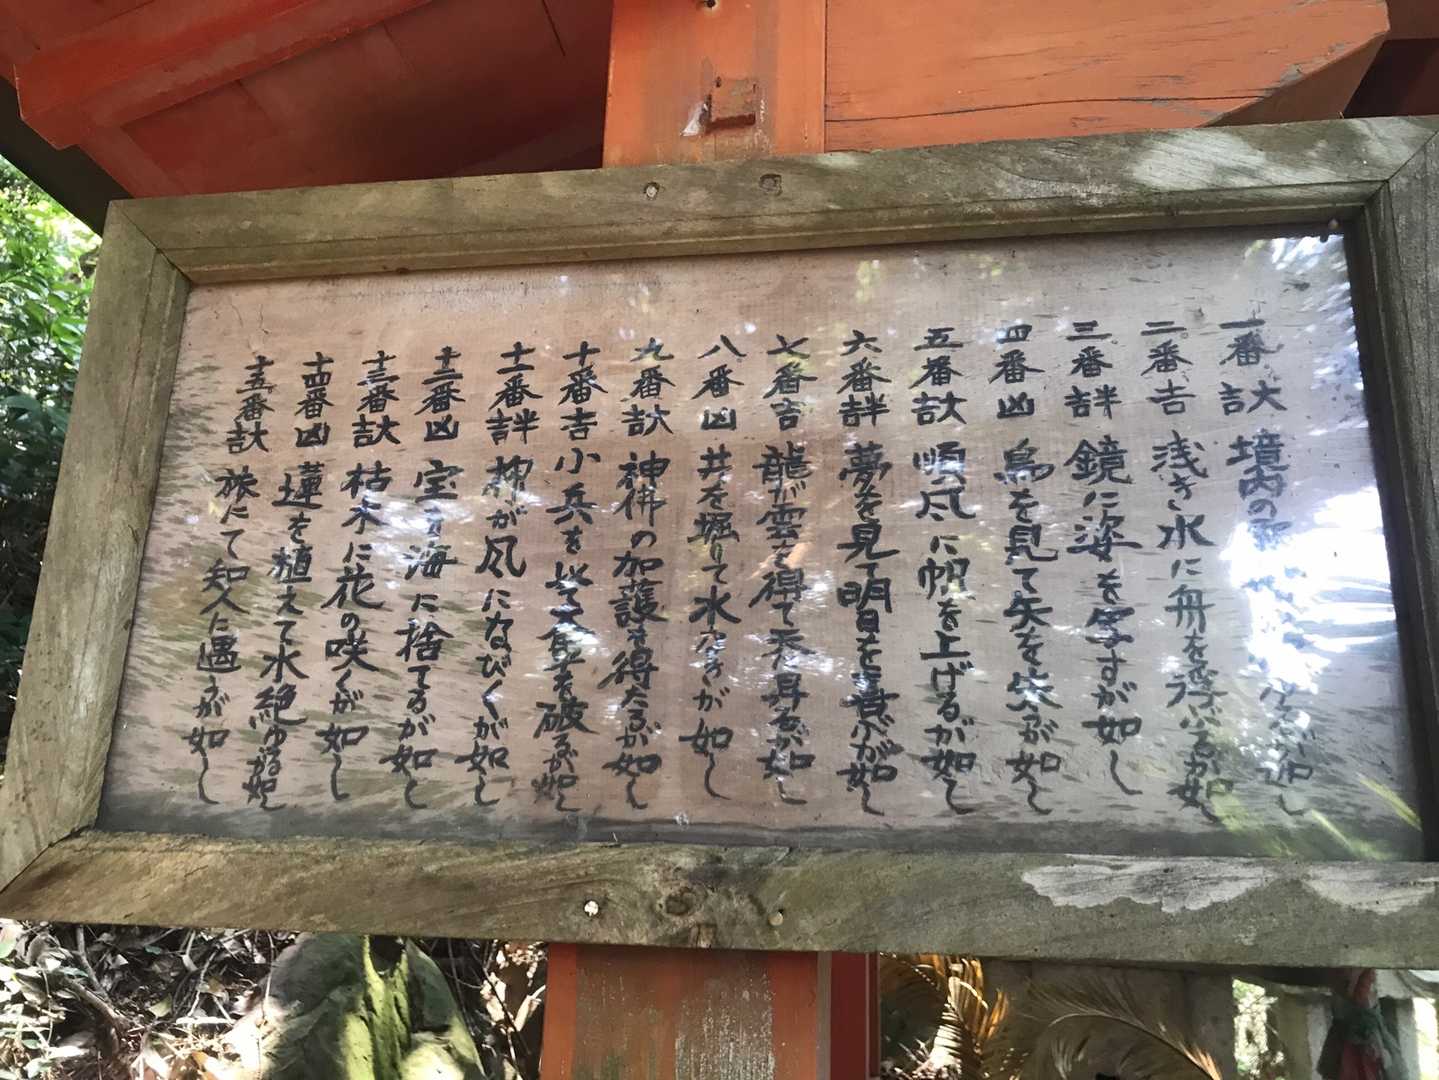 一番 大吉 境内の
二番 吉 浅き水に舟を浮べるが如
三番 半吉 鏡に姿を写すが如し
四番 凶 鳥を見て矢を失ふが如し
五番 大吉 順風に帆を上げるが如し
六番 半吉 夢を見て明日を喜ぶが如し
七番 吉 龍が雲を得て天に昇るが如し
八番 凶 井を堀りて水なきが如し
九番 大吉 神佛の加護を得たるが如し
十番 吉 小兵を以て を破るが如し
十一番 半吉 柳が風になびくが如し
十二番 凶 宝を海に捨てるが如し
十三番 大吉 枯木に花の咲くが如し
十四番 凶 蓮を植えて水絶ゆるが如し
十五番 大吉 旅にて知人に遇うが如し